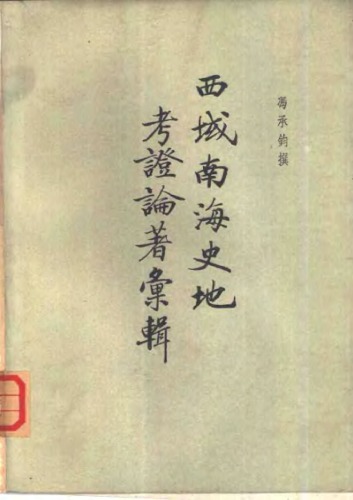 馮承鈞撰
西域南海史地
考證論著彙輯